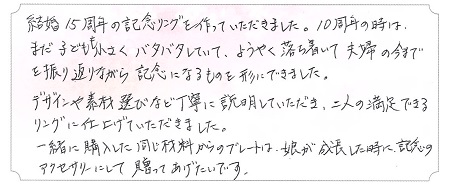 結婚15周年の記念リングを作っていただきました。10周年の時は、
まだ子どもも小さくバタバタしていて、ようやく落ち着いて夫婦の今まで
を振り返りながら記念になるものを形にできました。
デザインや素材選びなど丁寧に説明していただき、二人の満足できる
リングに仕上げていただきました。
一緒に購入した同じ材料からのプレートは、娘が成長した時に、記念の
アクセサリーにして贈ってあげたいです。